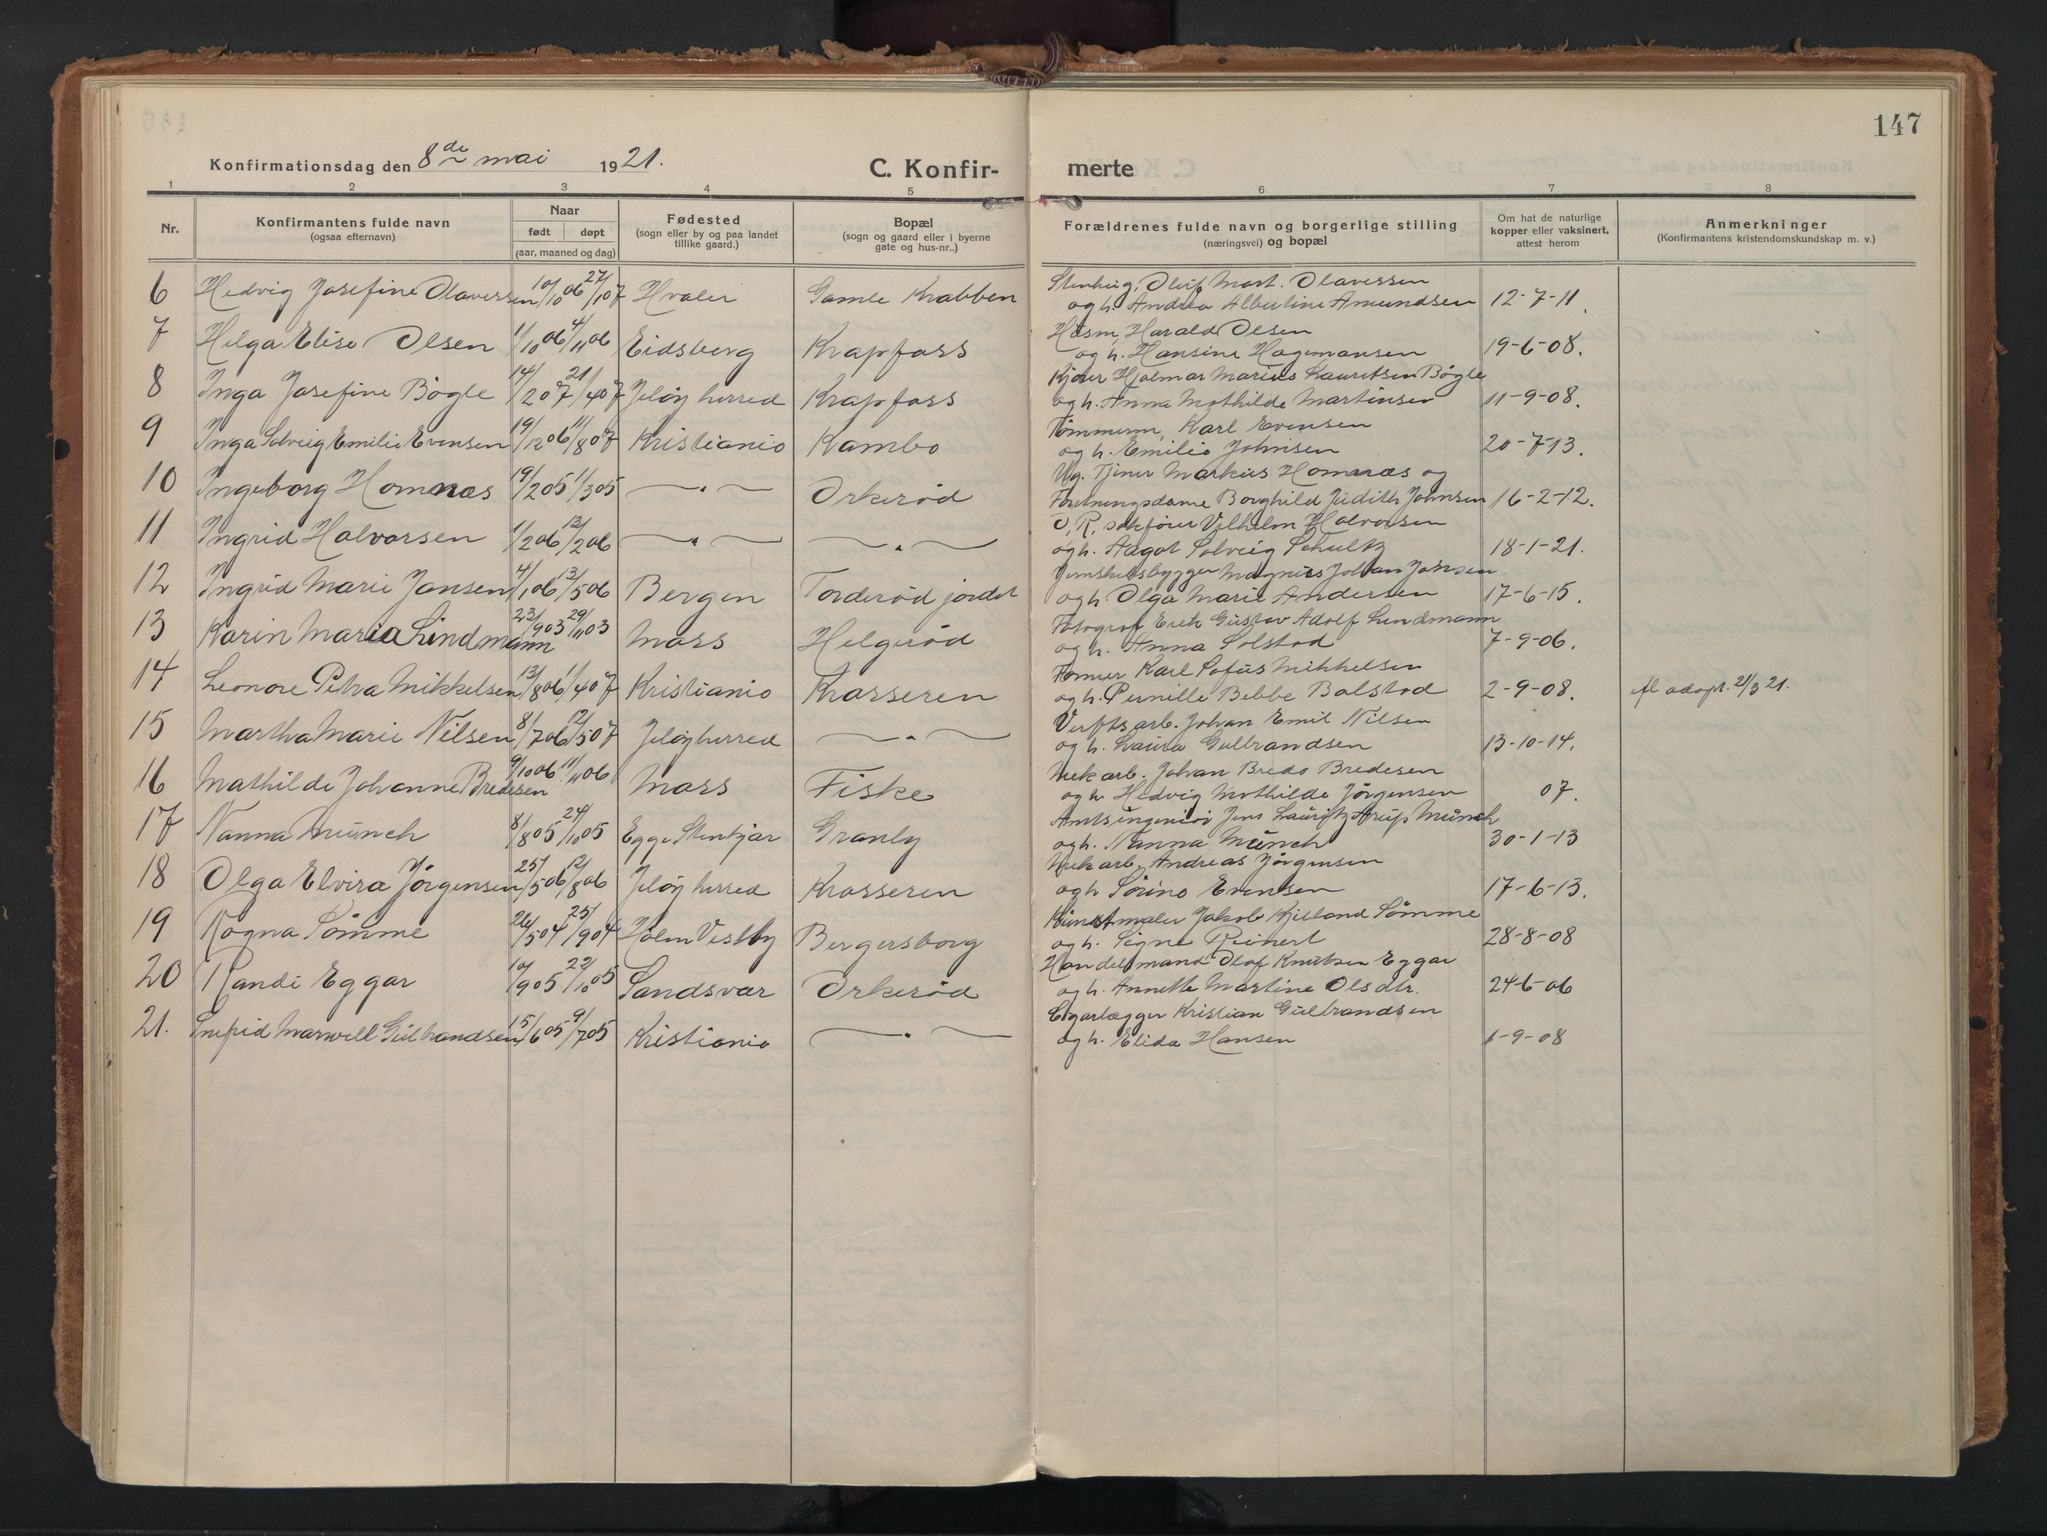 147
Konfirmationsdag den 8de mai 1921.
C. Konfir- merte
1 2 3 4 5 6 7 8
Nr. Konfirmantens fulde navn (ogsaa efternavn) Naar født døpt (aar, maaned og dag) Fødested (sogn eller by og paa landet tillike gaard.) Bopæl (sogn og gaard eller i byerne gate og hus-nr.) Forældrenes fulde navn og borgerlige stilling (næringsvei) og bopæl Om hat de naturlige kopper eller vaksinert, attest herom Anmerkninger (Konfirmantens kristendomskundskap m. v.)
6 Hedvig Josefine Olavessen 10/10 06 27/10 07 Hvaler Gamle Krabben Olaf Mart. Olavessen
og h. Andrea Albertine Amundsen 12-7-11.
7 Helga Elise Olsen 1/10 06 4/11 06 Eidsberg Krapfoss Harald Olsen
og h. Hansine Hagemansen 19-6-08.
8 Inga Josefine Bøgle 14/2 07 21/4 07 Jeløy herred Krapfoss Hjalmar Marius Lauritsen Bøgle
og h. Anna Mathilde Martinsen 11-9-08.
9 Inga Solveig Emilie Evensen 19/12 06 11/8 07 Kristiania Kambo Tømmerm, Karl Evensen
og h. Emilie Johnsen 20-7-13.
10 Ingeborg Homnæs 19/2 05 1/3 05 —"— Orkerød Ug. Tjener Markus Homnæs og
Foretningsdame Borghild Judith Johnsen 16-2-12.
11 Ingrid Halvorsen 1/2 06 12/2 06 —"— —"— O, R, sakfører Vilhelm Halvorsen
og h. Aagot Solveig Schultz 18-1-21.
12 Ingrid Marie Jansen 4/1 06 13/5 06 Bergen Torderød jordet Jernskibsbygger Magnus Johan Jansen
og h. Olga Marie Andersen 17-6-15.
13 Karin Maria Lindmann 23/9 03 29/11 03 Moss Helgerød Fotograf Erik Gustav Adolf Lindmann
og h. Anna Solstad 7-9-06.
14 Leonore Petra Mikkelsen 13/8 06 1/4 07 Kristiania Krasseren Former Karl Sofus Mikkelsen
og h. Pernille Bibbe Bolstad 2-9-08. fl adopt. 21/3 21.
15 Martha Marie Nilsen 8/7 06 12/5 07 Jeløy herred —"— Verftsarb. Johan Emil Nilsen
og h. Laura Gulbrandsen 13-10-14.
16 Mathilde Johanne Bredesen 9/10 06 11/11 06 Moss Fiske Mek arb. Johan Bredo Bredesen
og h Hedvig Mathilde Jørgensen 07.
17 Nanna Münch 8/8 05 24/10 05 Egge Stenkjær Granly Amtsingeniør Jens Lauritz Arup Münch
og h. Nanna Münch 30-1-13
18 Olga Elvira Jørgensen 25/5 06 12/8 06 Jeløy herred Krasseren Mek arb. Andreas Jørgensen
og h Sørine Evensen 17-6-13.
19 Ragna Sømme 26/5 04 25/9 04 Hølen Vestby Bergersborg Kunstmaler Jakob Kjelland Sømme
og h. Signe Reinert 28-8-08
20 Randi Eggar 10/9 05 22/10 05 Sandsvær Orkerød Handelsmand Olaf Knutsen Eggar
og h. Annette Martine Olsdtr. 24-6-06
21. Marwell Gulbrandsen 15/6 05 9/7 05 Kristiania —"— Cigarlægger Kristian Gulbrandsen
og h. Elida Hansen 1-9-08